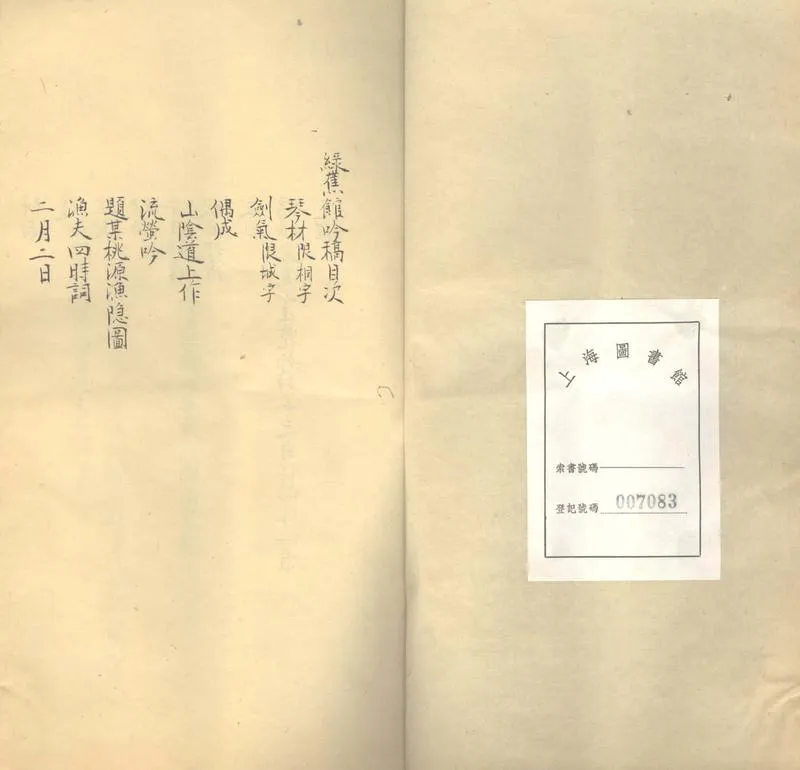 上海圖書館
索書號碼
登記號碼 007083
綠蕉館吟稿目次
琴材限桐字
劍氣限城字
偶成
山陰道上作
流螢吟
題某桃源漁隱圖
漁夫四時詞
二月二日